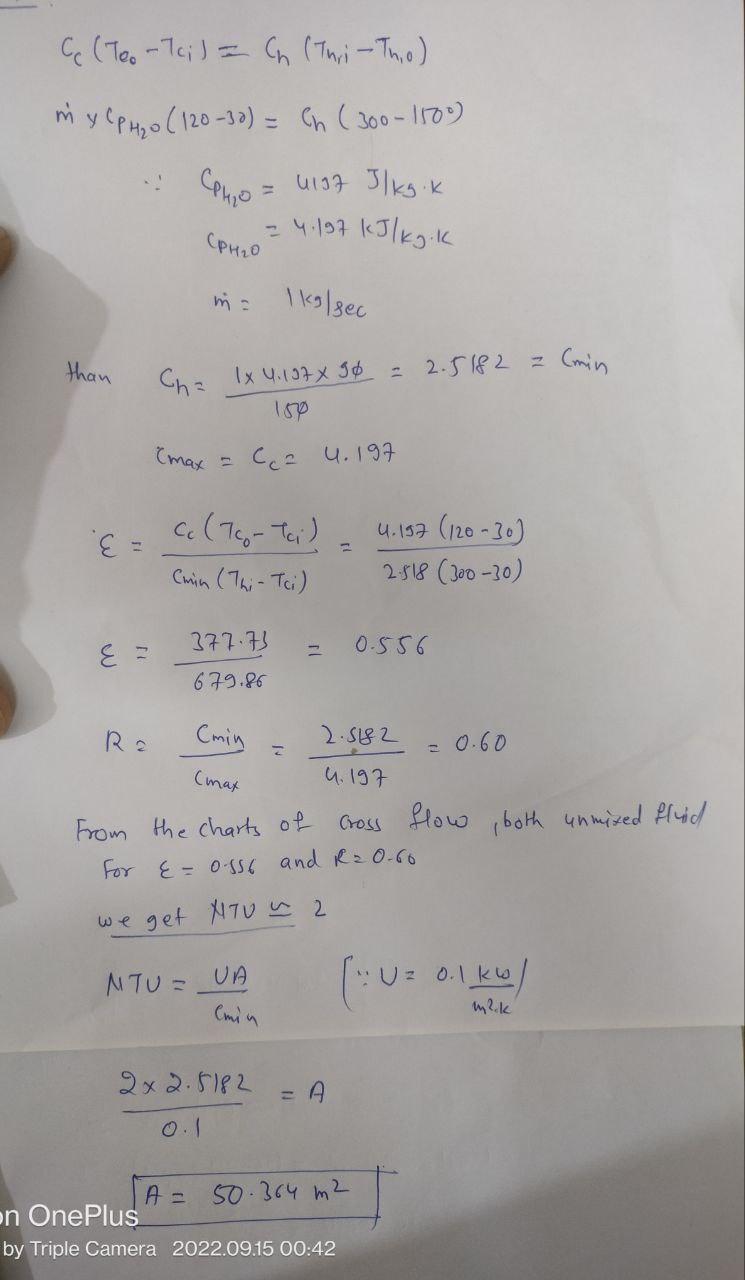 Cc (Tco - Tci) = Ch (Th,i - Th,o)
ṁ x CpH2O (120-30) = Ch (300-150°)
∵ CpH2O = 4197 J/kg.K
CpH2O = 4.197 kJ/kg.K
ṁ = 1 kg/sec
than Ch = 1x4.197x90 / 150 = 2.5182 = Cmin
Cmax = Cc = 4.197
ε = Cc (Tco - Tci) / Cmin (Thi - Tci) = 4.197 (120-30) / 2.518 (300-30)
ε = 377.73 / 679.86 = 0.556
R = Cmin / Cmax = 2.5182 / 4.197 = 0.60
From the charts of cross flow, both unmixed fluid
For ε = 0.556 and R = 0.60
we get NTU ≃ 2
NTU = UA / Cmin [∵ U = 0.1 kW / m².k]
2 x 2.5182 / 0.1 = A
A = 50.364 m²
on OnePlus
by Triple Camera 2022.09.15 00:42